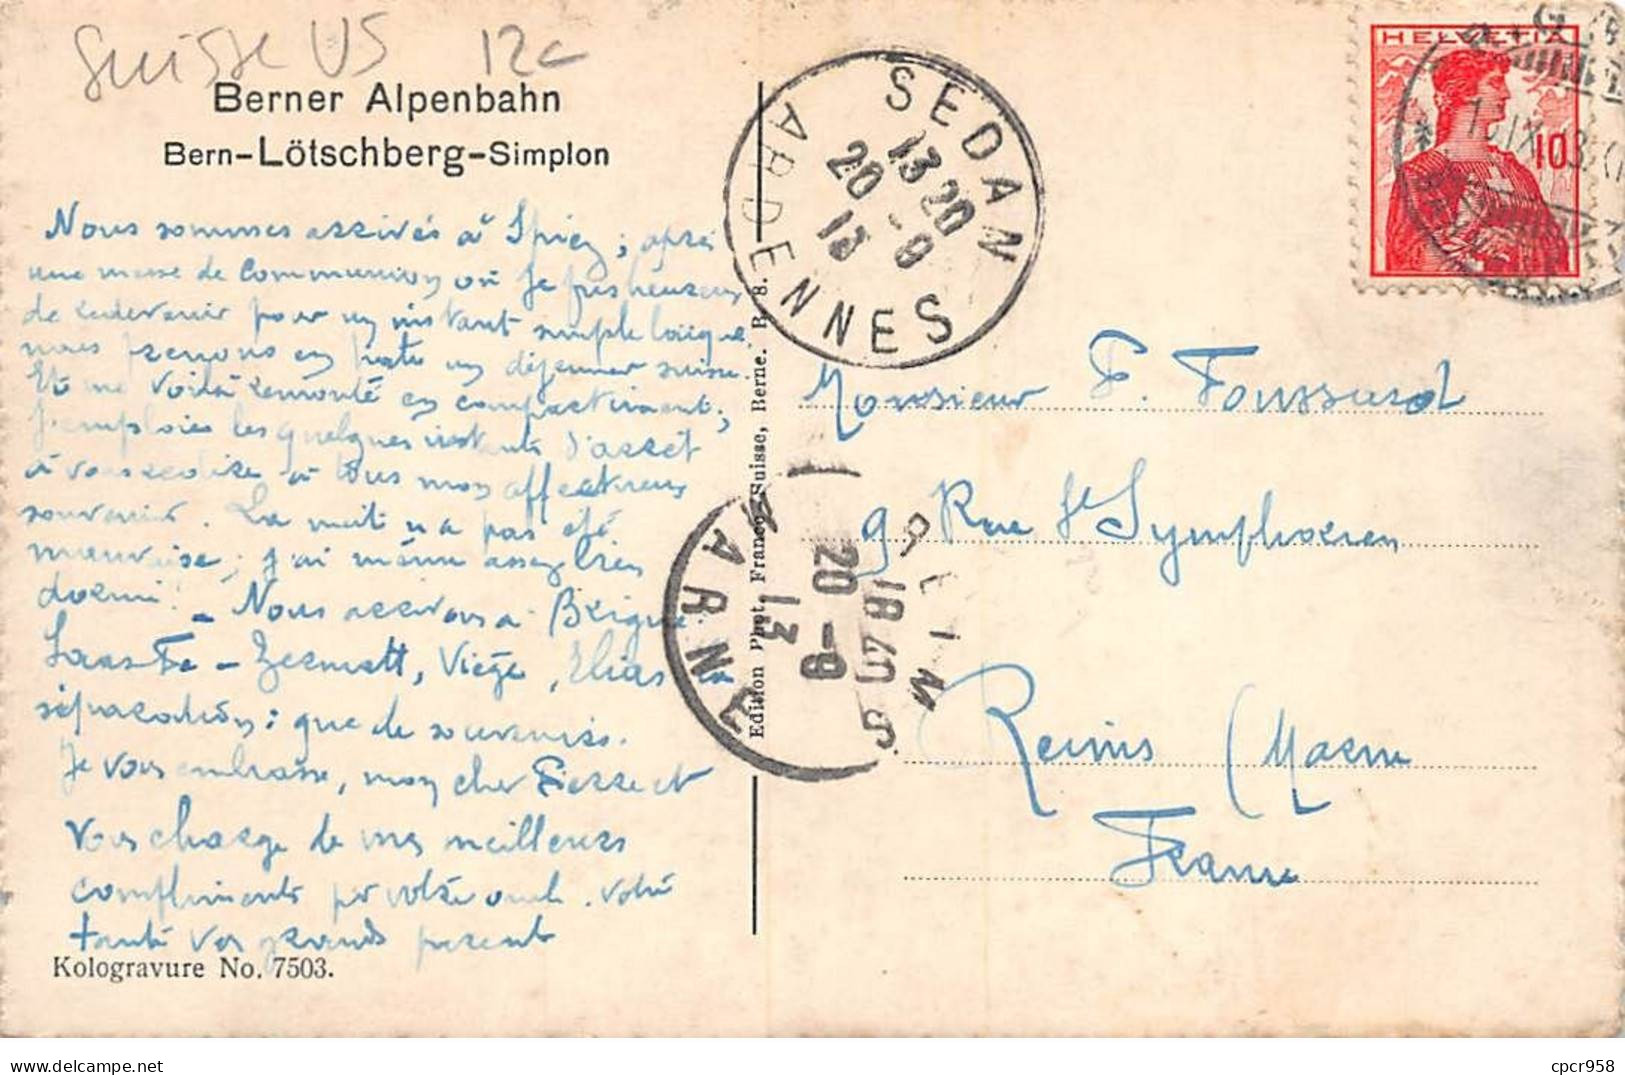 Suisse VS 12c
Berner Alpenbahn
Bern-Lötschberg-Simplon
Nous sommes arrivés à Spiez ; après
une messe de communion où je fus heureux
de redevenir pour un instant simple laïque
nous prenons en hâte un déjeuner suisse.
Et me voilà remonté en compartiment ;
j'emploie les quelques instants d'arrêt
à vous redire à tous mon affectueux
souvenir. La nuit n'a pas été
mauvaise ; j'ai même assez bien
dormi. - Nous arrivons à Brigue
Saas-Fe - Zermatt, Viège,
séparation : que de souvenirs.
Je vous embrasse, mon cher Pierre et
vous charge de mes meilleurs
compliments pr votre oncle. votre
tante vos grands parents
Kologravure No. 7503.
Edition Phot. Franco-Suisse, Berne. B 8.
SEDAN
13 20
20 -9
13
ARDENNES
REIMS
18 40
20 -9
13
MARNE
HELVETIA
10
Monsieur F. Foussard
9 Rue St Symphorien
Reims (Marne
France
cpcr958